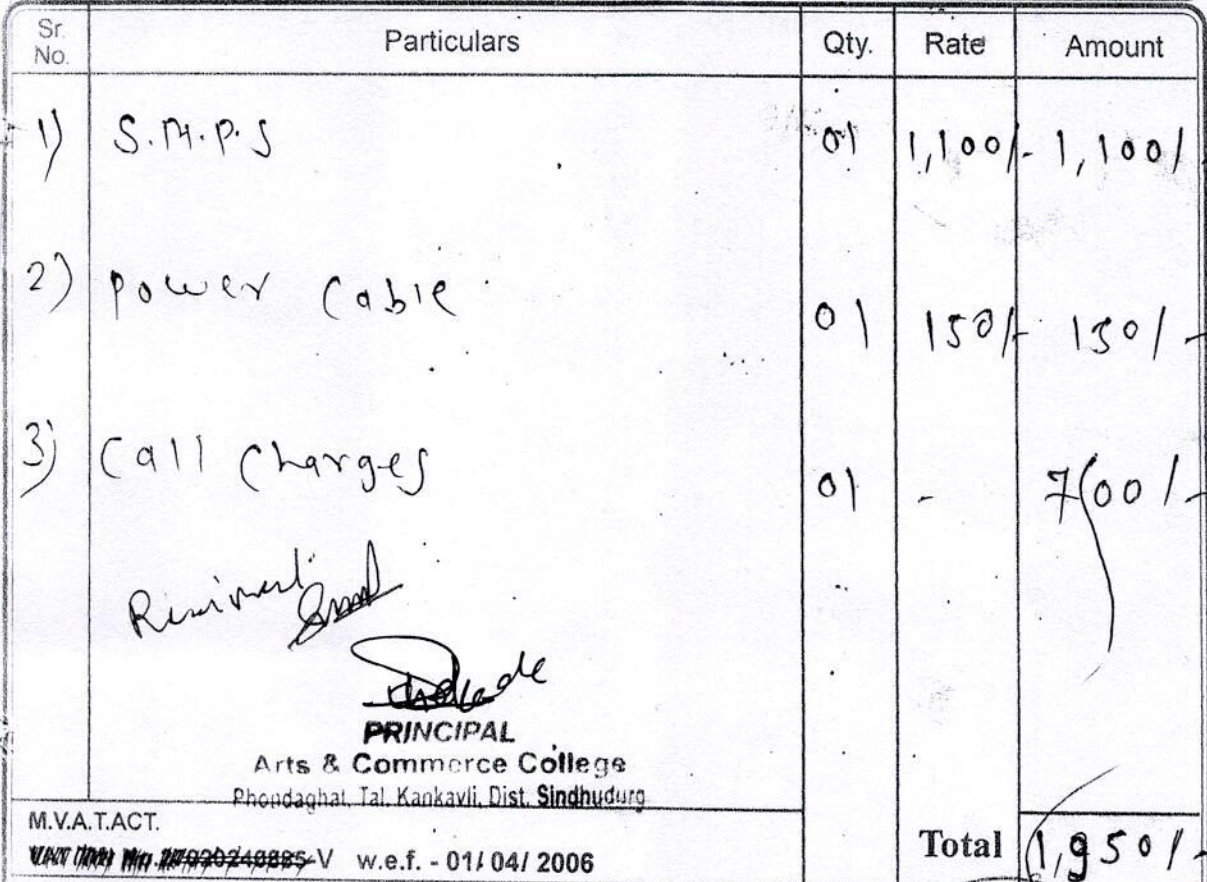 Sr. No. Particulars Qty. Rate Amount
1) S.M.P.S 01 1,100/- 1,100/-
2) Power Cable 01 150/- 150/-
3) Call Charges 01 - 700/-
PRINCIPAL
Arts & Commerce College
Phondaghat, Tal. Kankavli, Dist. Sindhudurg
M.V.A.T.ACT.
V w.e.f. - 01/04/2006
Total 1,950/-